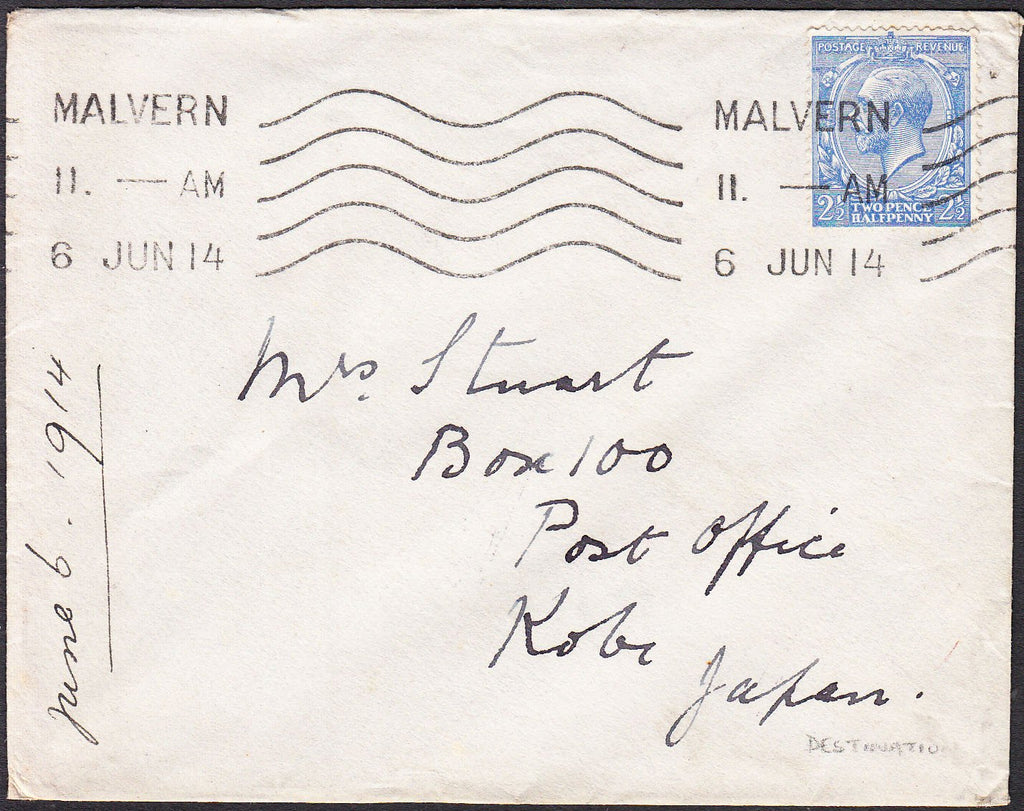 POSTAGE REVENUE
MALVERN
11. — AM
6 JUN 14
MALVERN
11. — AM
6 JUN 14
2½ TWO PENCE HALFPENNY 2½
Mrs Stuart
Box 100
Post Office
Kobe
Japan.
June 6. 1914
DESTINATION